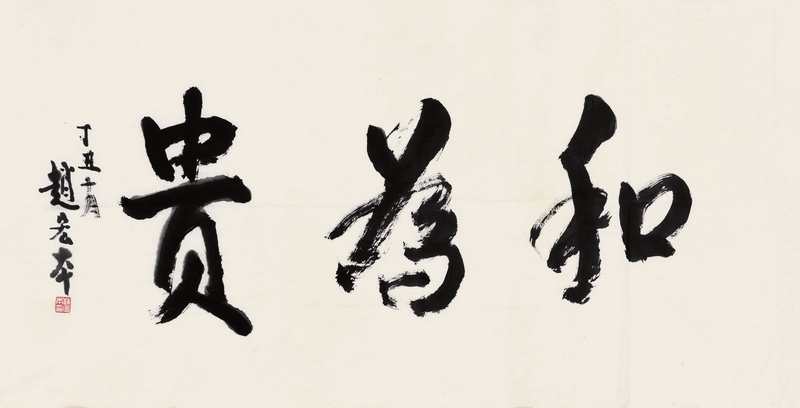 和為貴
丁丑十月
趙宏本